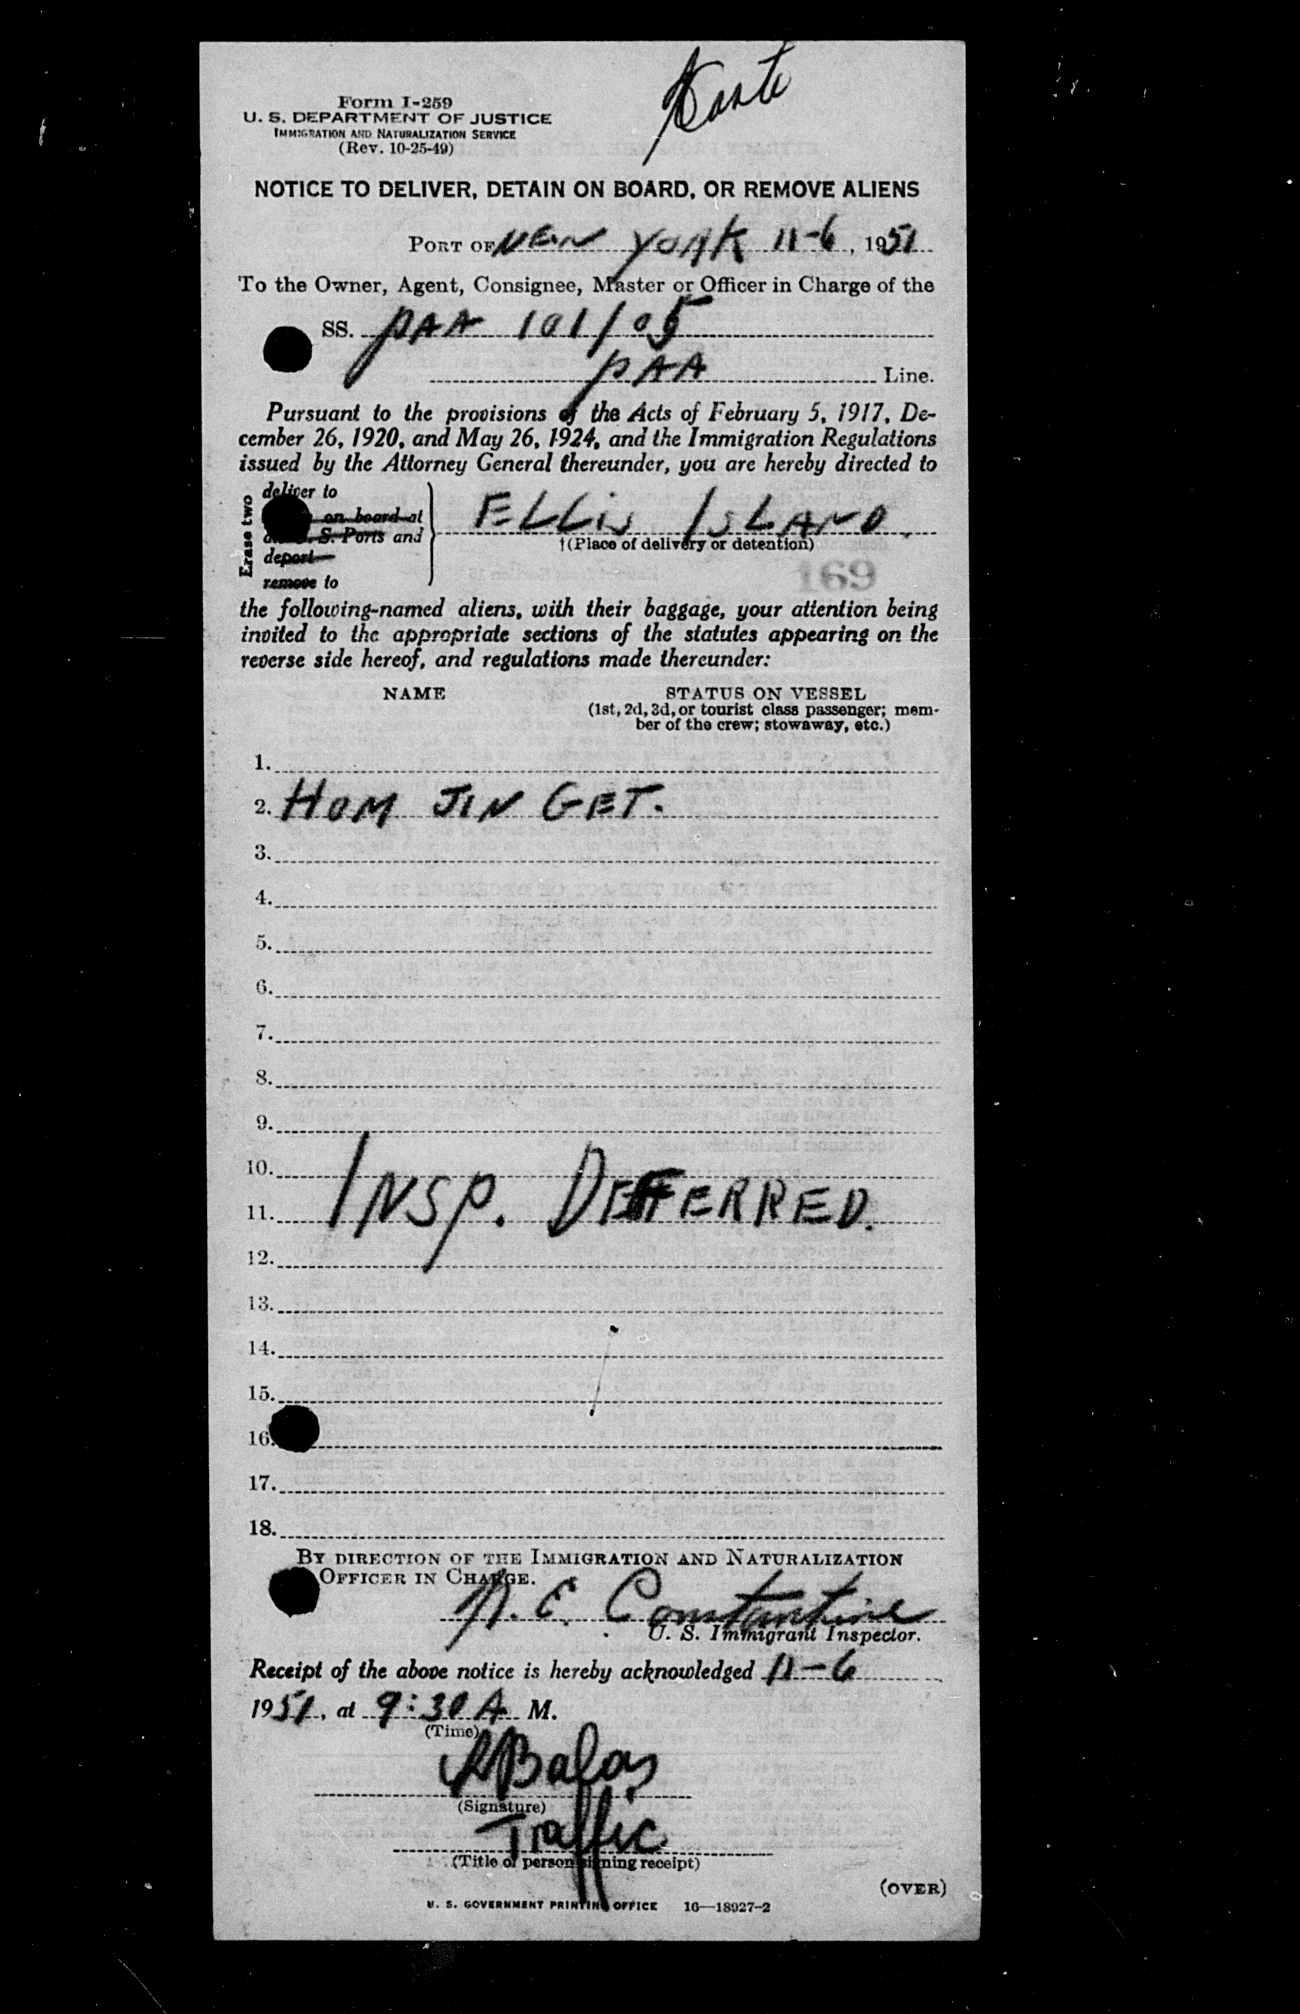 Form I-259
U. S. DEPARTMENT OF JUSTICE
IMMIGRATION AND NATURALIZATION SERVICE
(Rev. 10-25-49)
NOTICE TO DELIVER, DETAIN ON BOARD, OR REMOVE ALIENS
PORT OF NEW YORK 11-6, 1951
To the Owner, Agent, Consignee, Master or Officer in Charge of the
SS. PAA 101/05
PAA Line.
Pursuant to the provisions of the Acts of February 5, 1917, De-
cember 26, 1920, and May 26, 1924, and the Immigration Regulations
issued by the Attorney General thereunder, you are hereby directed to
Erase two
deliver to
on board at
S. Ports and
deport
remove to
ELLIS ISLAND.
†(Place of delivery or detention)
169
the following-named aliens, with their baggage, your attention being
invited to the appropriate sections of the statutes appearing on the
reverse side hereof, and regulations made thereunder:
NAME STATUS ON VESSEL
(1st, 2d, 3d, or tourist class passenger; mem-
ber of the crew; stowaway, etc.)
1.
2. HOM JIN GET.
3.
4.
5.
6.
7.
8.
9.
10.
11. INSP. DEFFERRED.
12.
13.
14.
15.
16.
17.
18.
BY DIRECTION OF THE IMMIGRATION AND NATURALIZATION
OFFICER IN CHARGE.
N. E. Constantine
U. S. Immigrant Inspector.
Receipt of the above notice is hereby acknowledged 11-6
1951, at 9:30 A M.
(Time)
Balas
(Signature)
Traffic
(Title of person signing receipt)
(OVER)
U. S. GOVERNMENT PRINTING OFFICE 16—18927-2